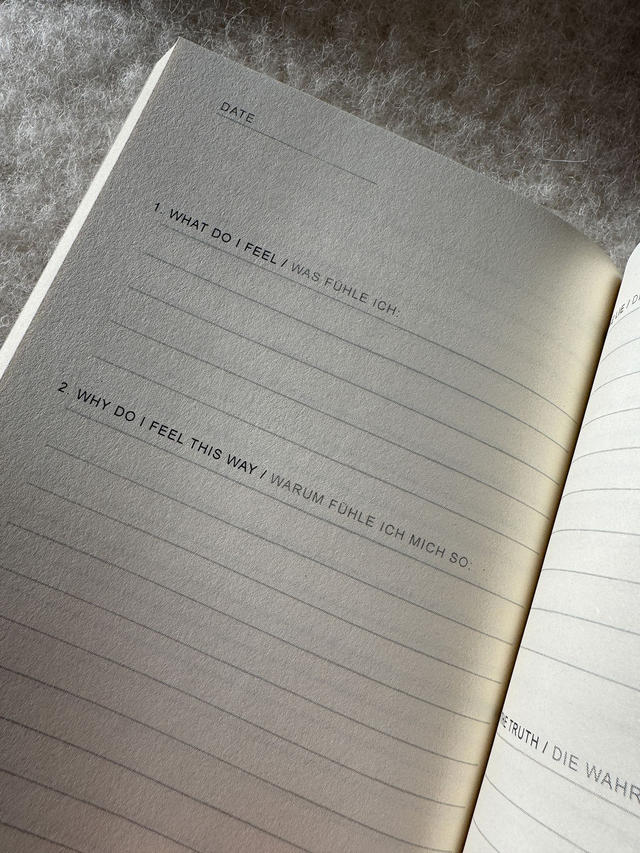 DATE
1. WHAT DO I FEEL / WAS FÜHLE ICH:
2. WHY DO I FEEL THIS WAY / WARUM FÜHLE ICH MICH SO:
TRUTH / DIE